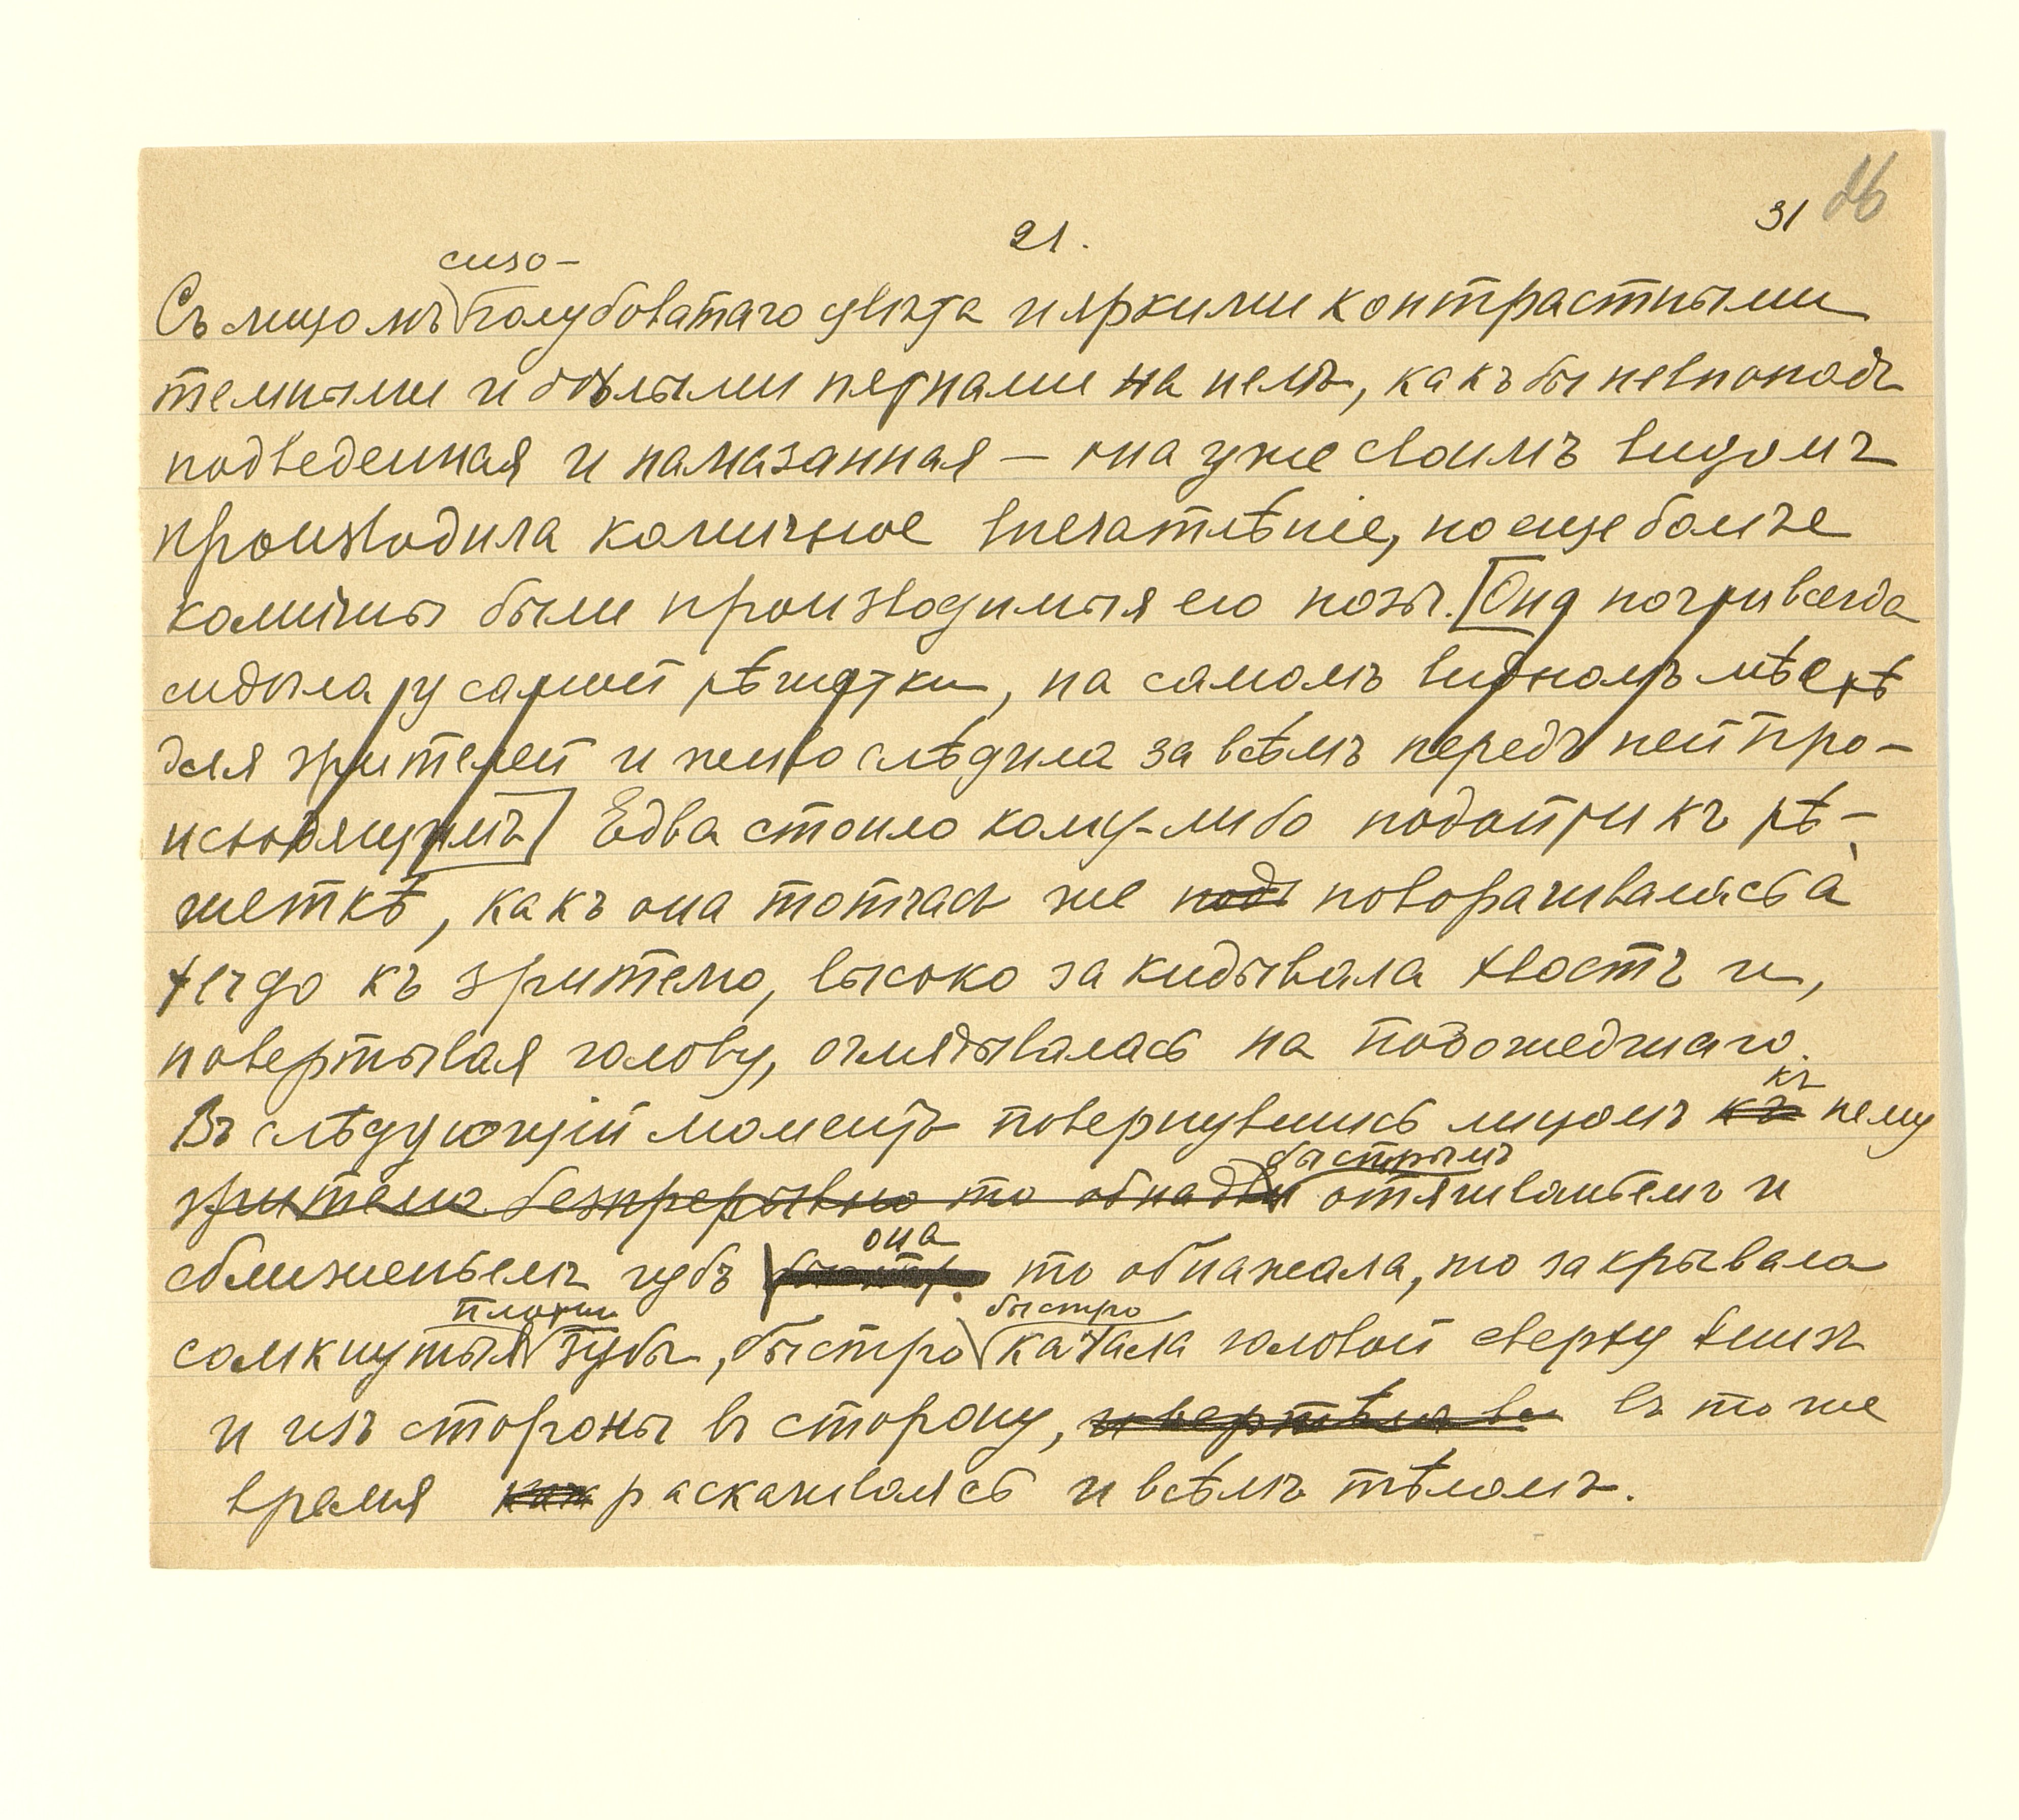 21.
31 26
сизо-
Съ лицомъ голубоватаго цвѣта и яркими контрастными
темными и бѣлыми пятнами на немъ, какъ бы невпопадъ
подведенная и намазанная — она уже своимъ видомъ
производила комичное впечатлѣніе, но еще болѣе
комичны были производимыя ею позы. [Она почти всегда
сидѣла у самой рѣшетки, на самомъ видномъ мѣстѣ
для зрителей и живо слѣдила за всѣмъ передъ ней про-
исходящимъ] Едва стоило кому-либо подойти къ рѣ-
шеткѣ, какъ она тотчасъ же подъ поворачивалась à
tergo къ зрителю, высоко закидывала хвостъ и,
повертывая голову, оглядывалась на подошедшаго.
къ
Въ слѣдующій моментъ повернувшись лицомъ къ нему
быстрымъ
зрителю безпрерывно то обнаж отягиваньемъ и
она
сближеньемъ губъ то обнажала, то закрывала
плотно быстро
сомкнутыя зубы, быстро качала головой сверху внизъ
и изъ стороны въ сторону, и вертѣла въ то же
время как раскачиваясь и всѣмъ тѣломъ.